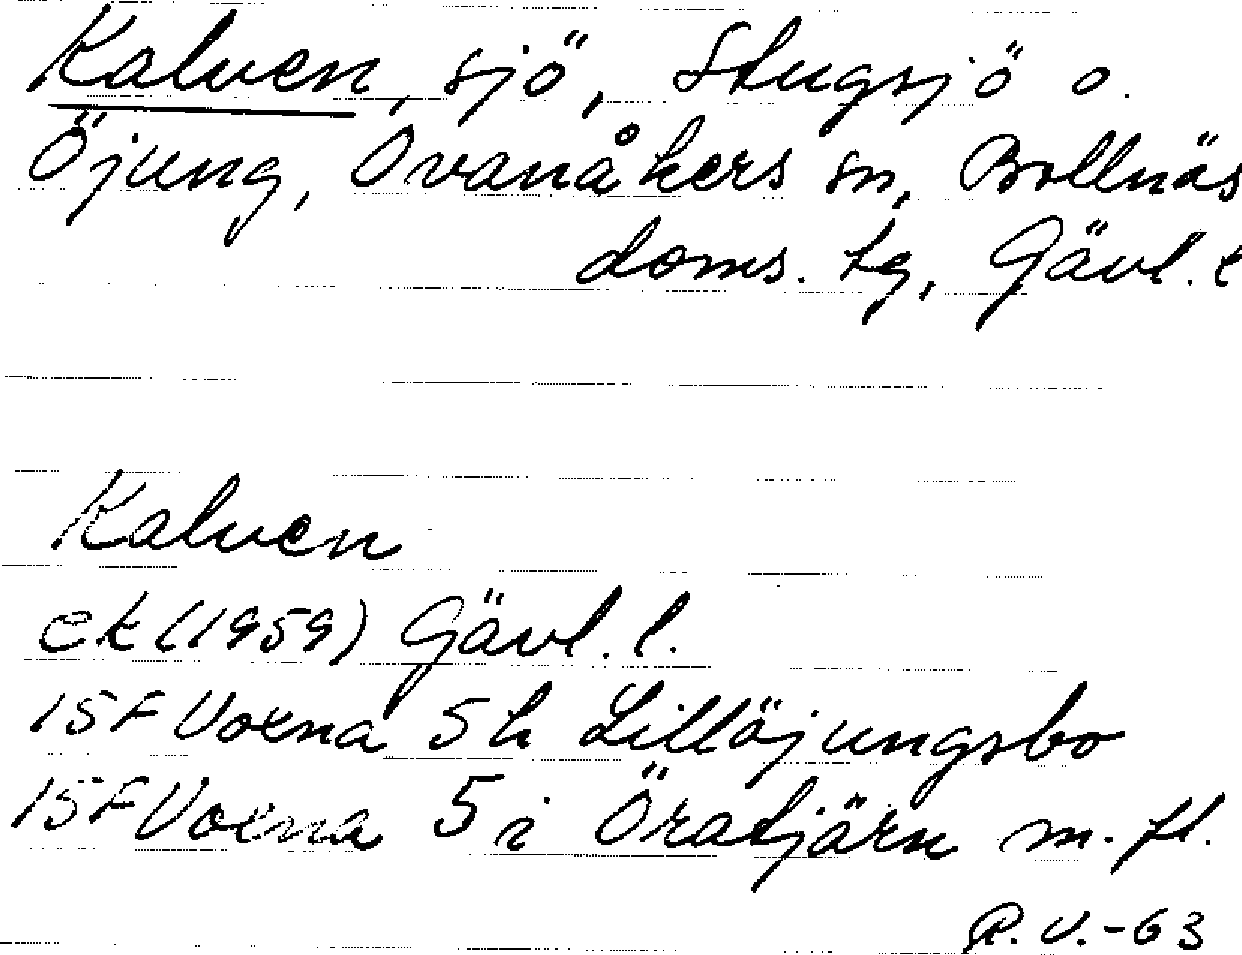 Kalven, sjö, Stugsjö o.
Öjung, Ovanåkers sn, Bollnäs
doms. tg, Gävl. l
Kalven
ek (1959) Gävl. l.
15F Voxna 5h Lillöjungsbo
15F Voxna 5i Öratjärn m. fl.
R. V. -63